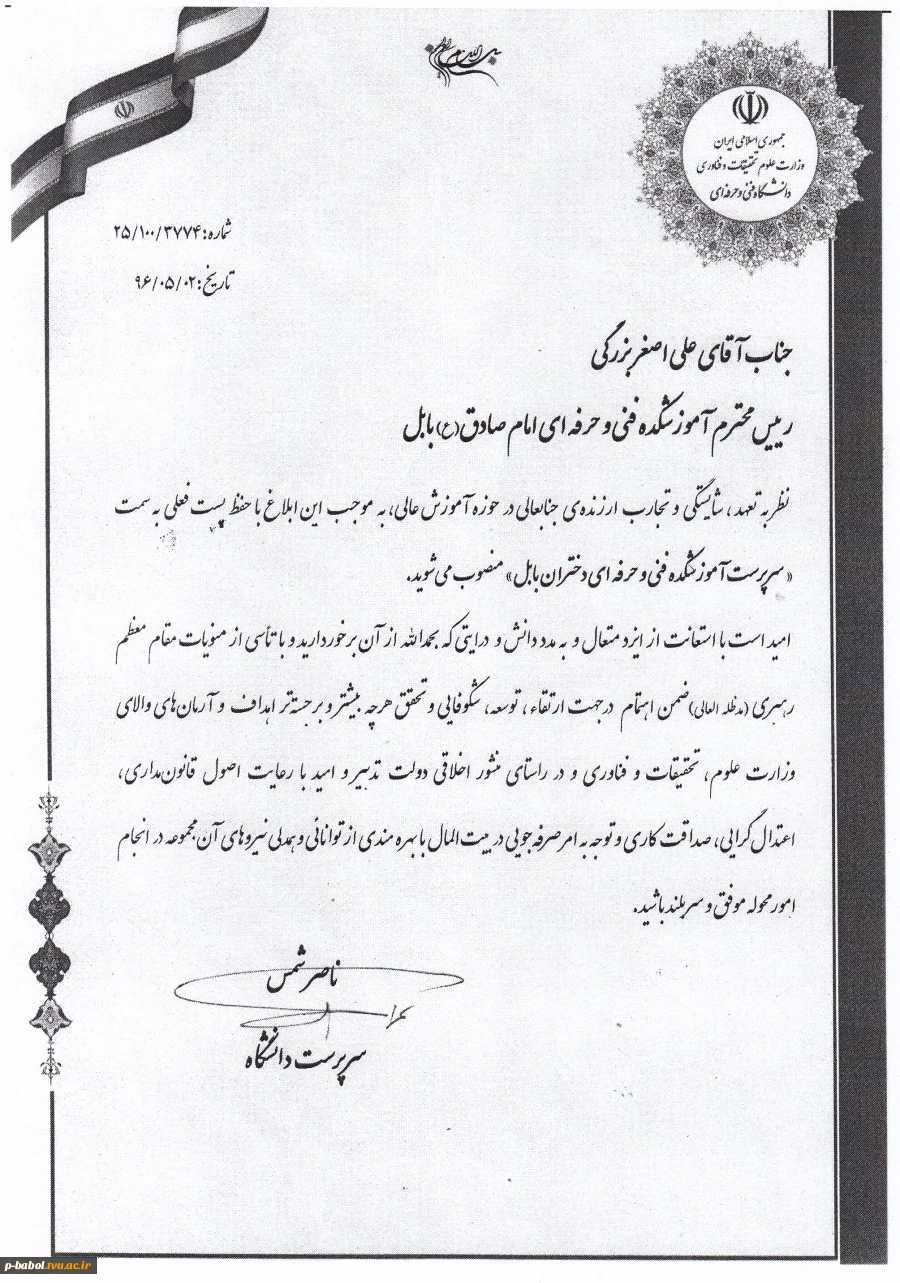 بسم الله الرحمن الرحیم
جمهوری اسلامی ایران
وزارت علوم تحقیقات و فناوری
دانشگاه فنی و حرفه‌ای
شماره: ۲۵/۱۰۰/۳۷۷۴
تاریخ: ۹۶/۰۵/۰۲
جناب آقای علی اصغر بزرگی
رییس محترم آموزشکده فنی و حرفه ای امام صادق(ع) بابل
نظر به تعهد، شایستگی و تجارب ارزنده‌ی جنابعالی در حوزه آموزش عالی، به موجب این ابلاغ با حفظ پست فعلی به سمت
«سرپرست آموزشکده فنی و حرفه ای دختران بابل» منصوب می شوید.
امید است با استعانت از ایزد متعال و به مدد دانش و درایتی که بحمدالله از آن برخوردارید و با تأسی از منویات مقام معظم
رهبری (مدظله العالی) ضمن اهتمام در جهت ارتقاء، توسعه، شکوفایی و تحقق هرچه بیشتر و برجسته‌تر اهداف و آرمان‌های والای
وزارت علوم، تحقیقات و فناوری و در راستای منشور اخلاقی دولت تدبیر و امید با رعایت اصول قانون‌مداری،
اعتدال گرایی، صداقت کاری و توجه به امر صرفه جویی در بیت المال با بهره مندی از توانائی و همدلی نیروهای آن مجموعه در انجام
امور محوله موفق و سربلند باشید.
ناصر شمس
سرپرست دانشگاه
p-babol.tvu.ac.ir